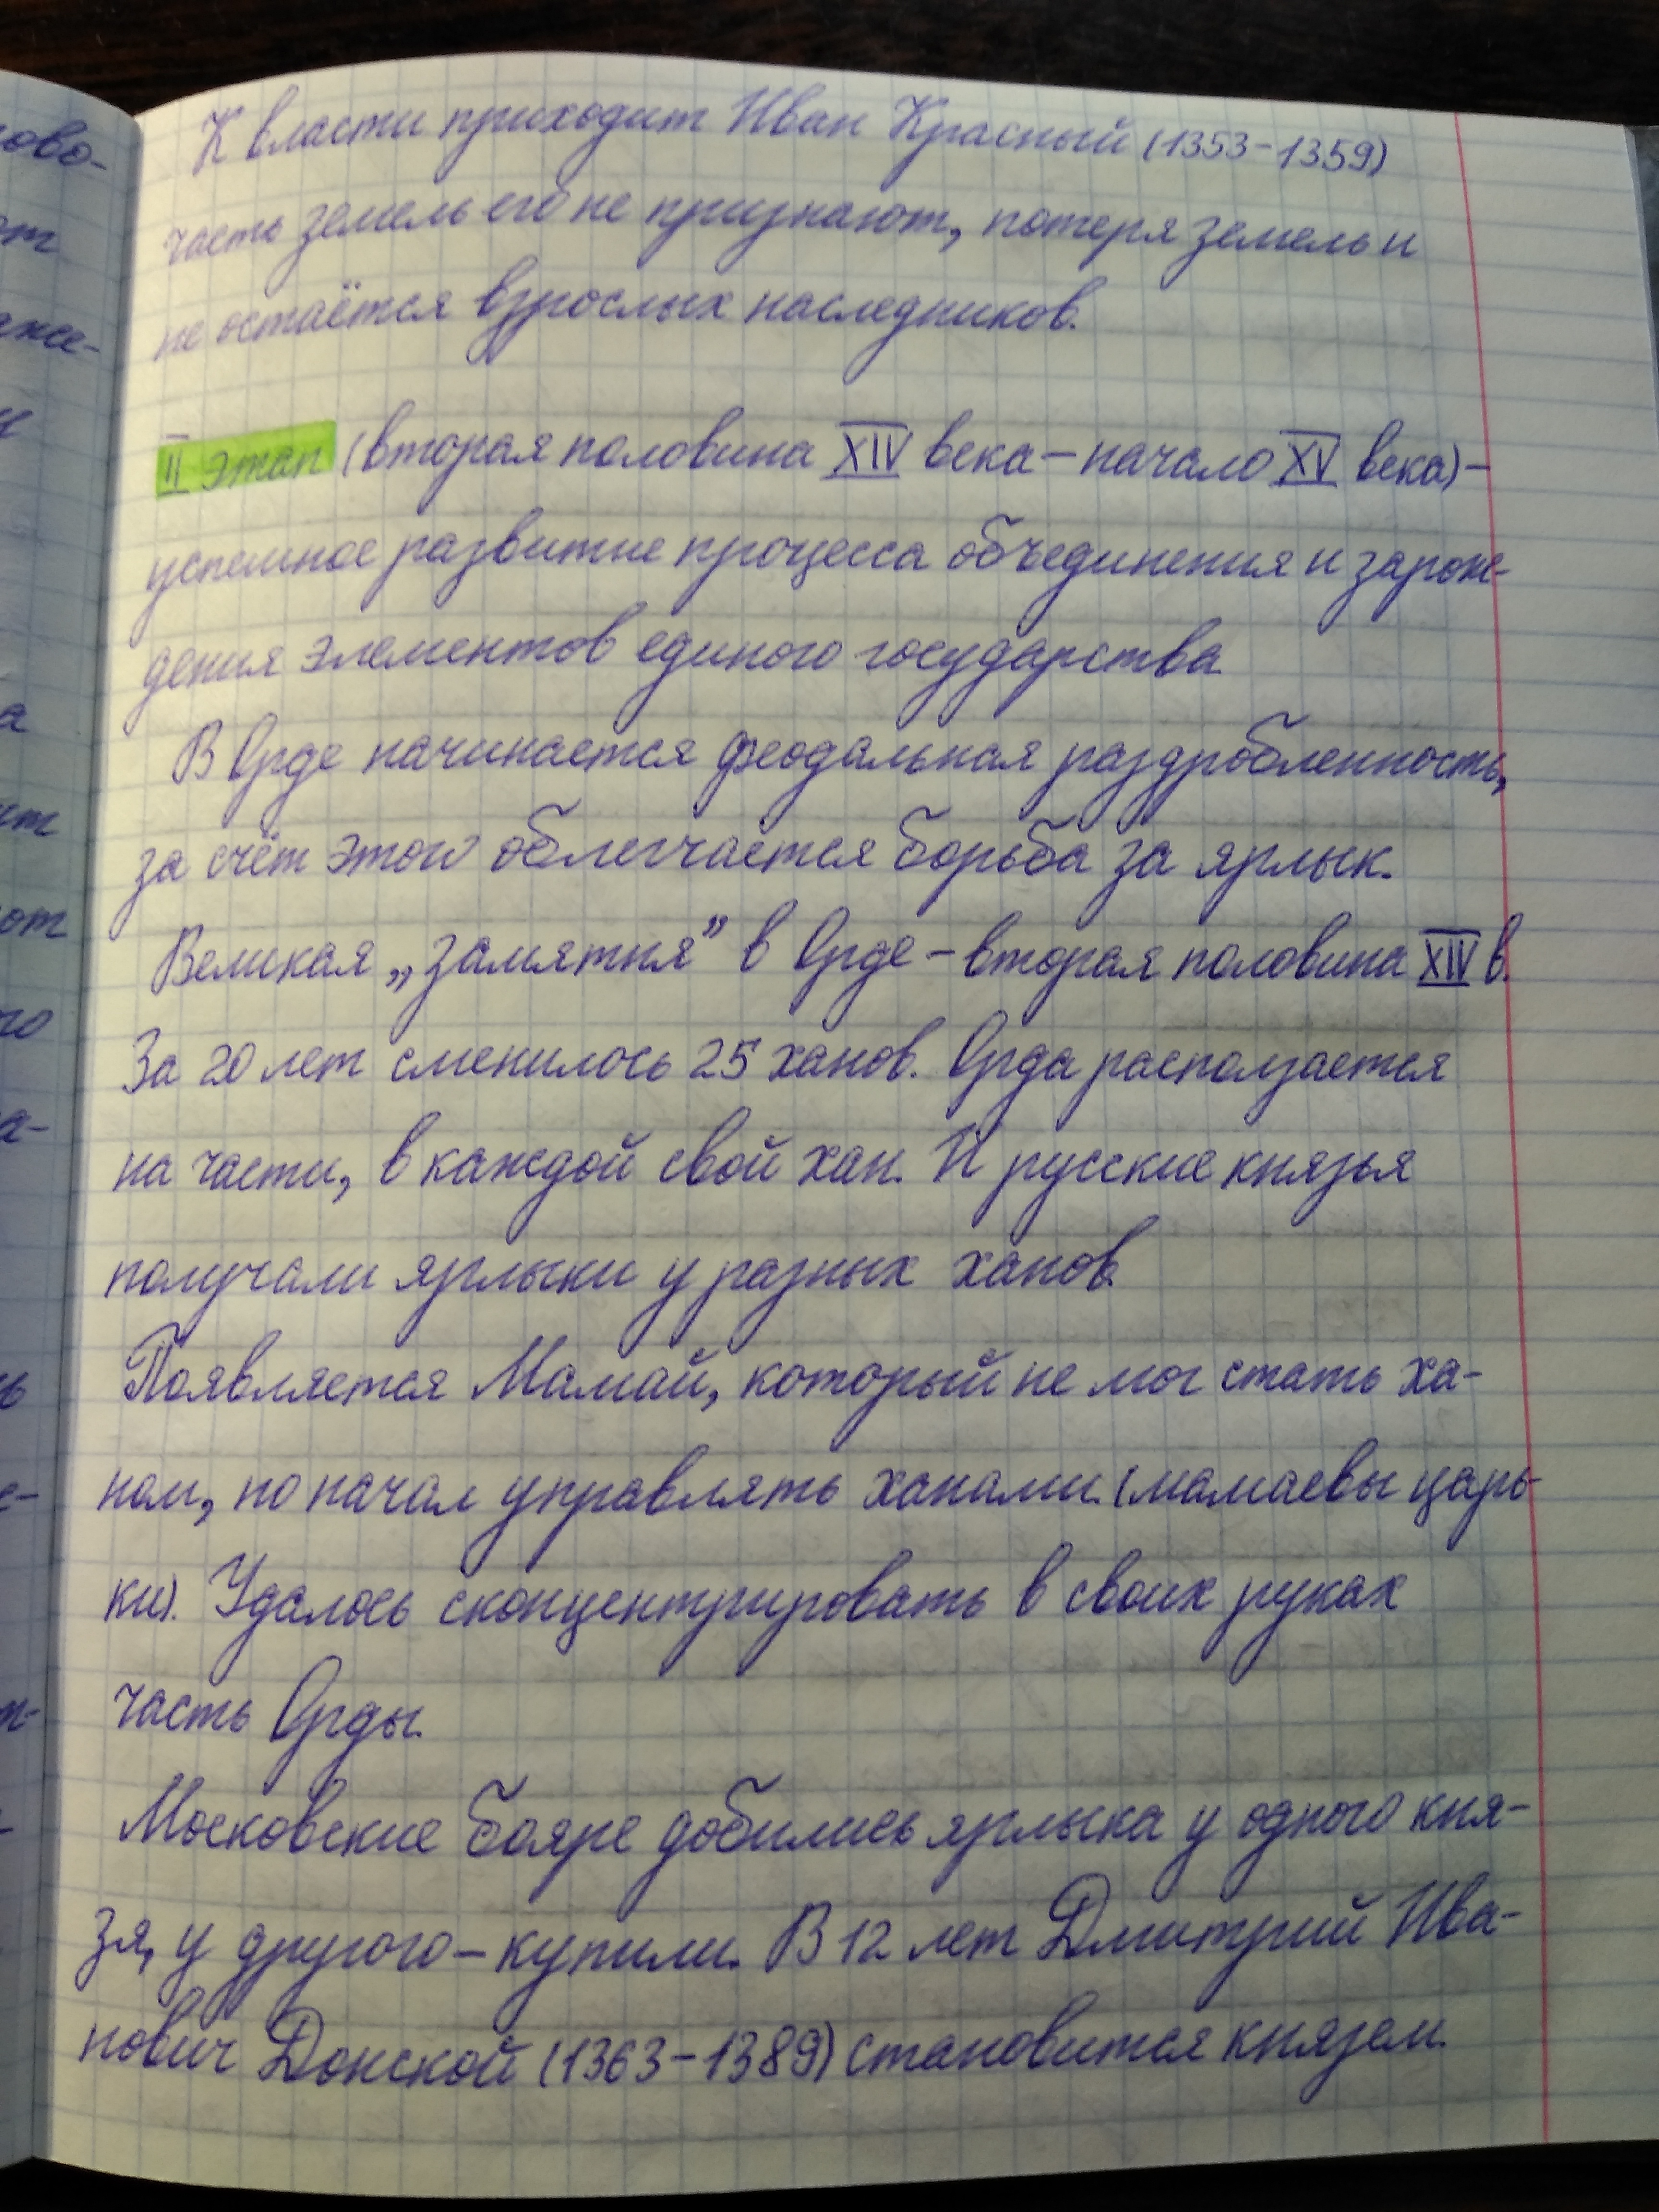 К власти приходит Иван Красный (1353-1359)
часть земель его не признают, потеря земель и
не остаётся взрослых наследников.
II этап (вторая половина XIV века - начало XV века) -
успешное развитие процесса объединения и зарож-
дения элементов единого государства
В Орде начинается феодальная раздробленность,
за счёт этого облегчается борьба за ярлык.
Великая „замятня” в Орде - вторая половина XIV в.
За 20 лет сменилось 25 ханов. Орда расползается
на части, в каждой свой хан. И русские князья
получали ярлыки у разных ханов.
Появляется Мамай, который не мог стать ха-
ном, но начал управлять ханами. (мамаевы царь-
ки). Удалось сконцентрировать в своих руках
часть Орды.
Московские бояре добились ярлыка у одного кня-
зя, у другого - купили. В 12 лет Дмитрий Ива-
нович Донской (1363-1389) становится князем.